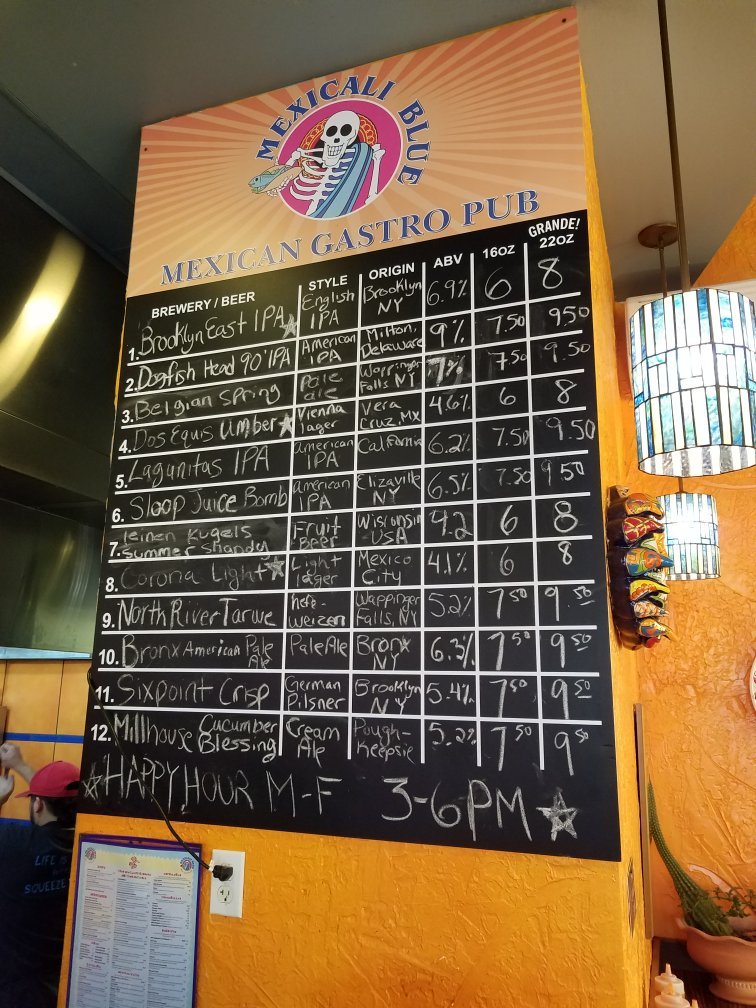 MEXICALI BLUE
MEXICAN GASTRO PUB
BREWERY / BEER STYLE ORIGIN ABV 16OZ GRANDE! 22OZ
1. Brooklyn East IPA English IPA Brooklyn NY 6.9% 6 8
2. Dogfish Head 90' IPA American IPA Milton, Delaware 9% 7.50 9.50
3. Belgian Spring Pale ale Falls NY 7.50 9.50
4. Dos Equis Umber Vienna lager Vera Cruz, MX 4.6% 6 8
5. Lagunitas IPA American IPA California 6.2% 7.50 9.50
6. Sloop Juice Bomb American IPA Elizaville NY 6.5% 7.50 9.50
7. leinen Kugels Summer Shandy Fruit Beer Wisconsin USA 4.2 6 8
8. Corona Light Light lager Mexico City 4.1% 6 8
9. North River Tarwe hefe-weizen Wappinger Falls, NY 5.2% 7 50 9 50
10. Bronx American Pale Ale Pale Ale Bronx NY 6.3% 7 50 9 50
11. Sixpoint Crisp German Pilsner Brooklyn NY 5.4% 7 50 9 50
12. Millhouse Cucumber Blessing Cream Ale Pough-Keepsie 5.2% 7 50 9 50
HAPPY HOUR M-F 3-6PM
LIFE IS
SQUEEZE